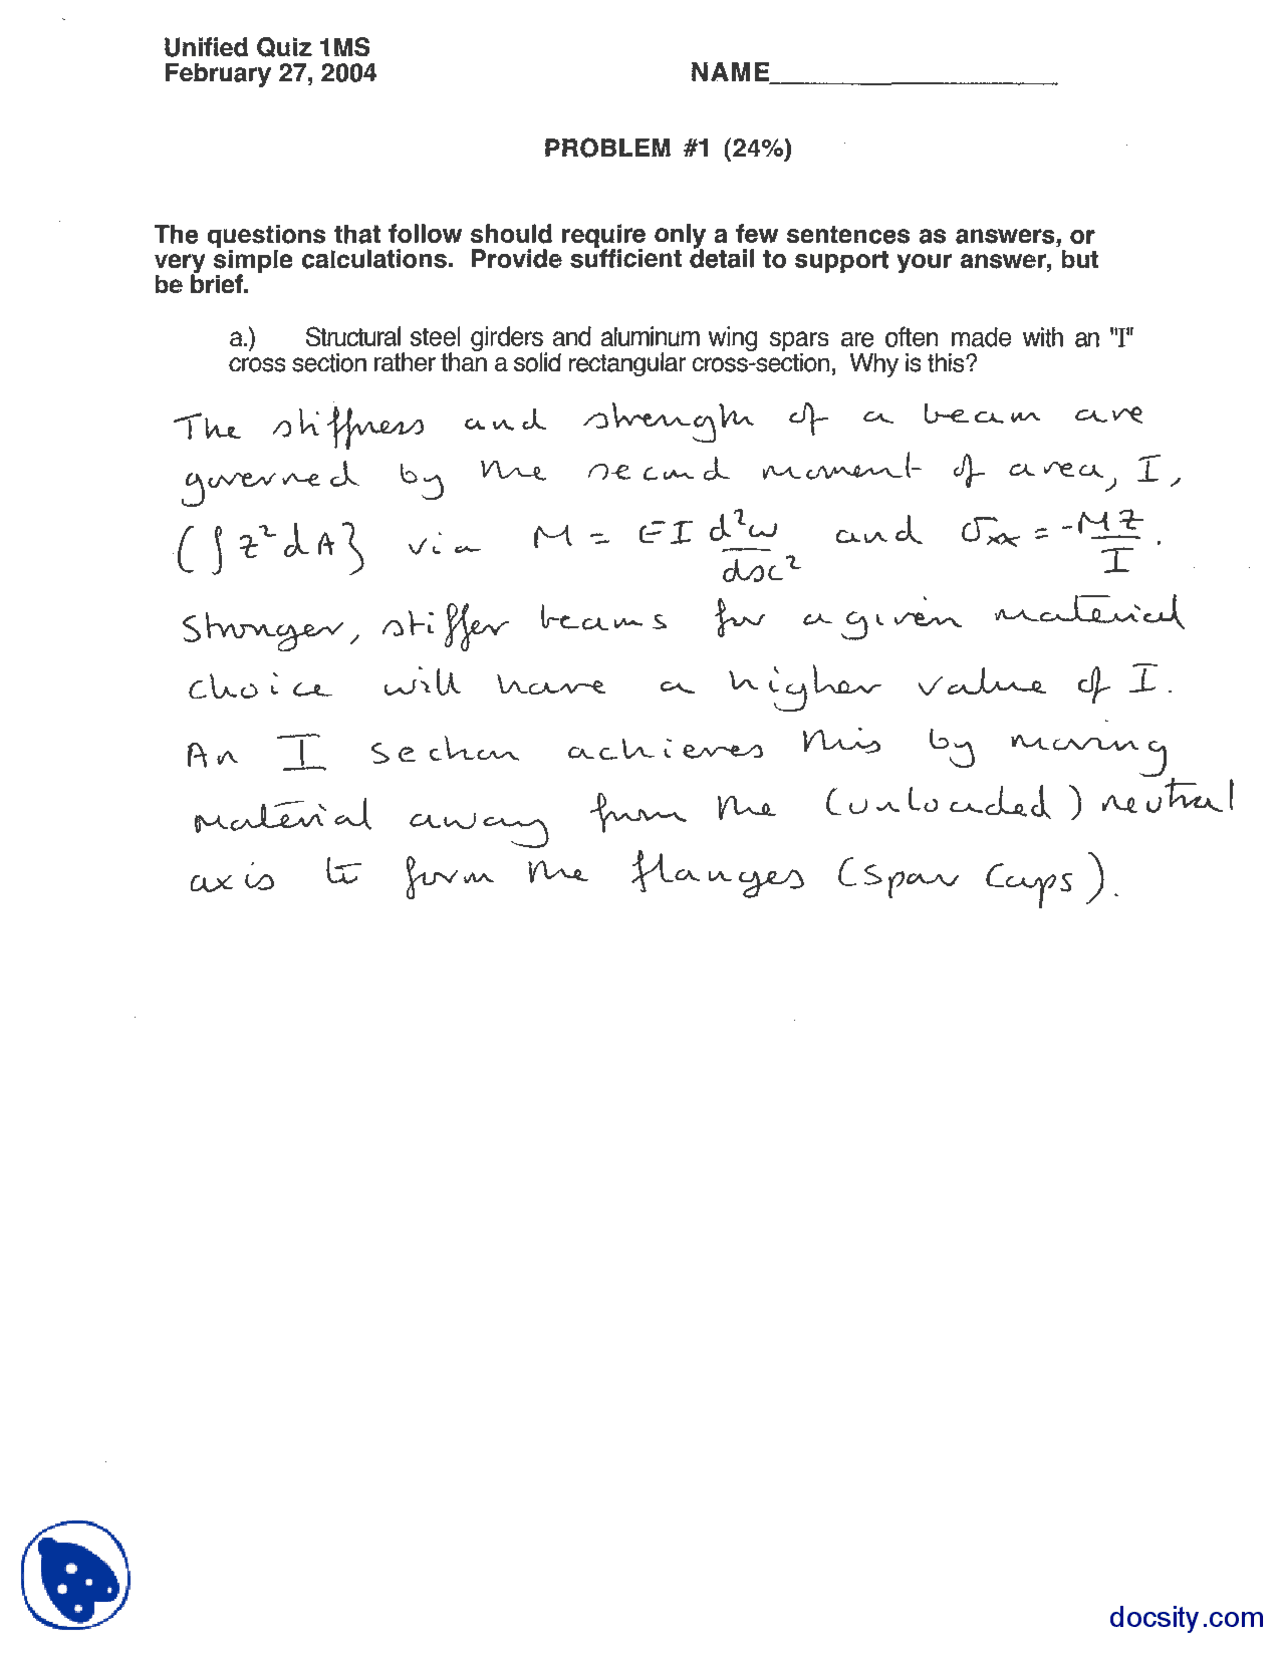 Unified Quiz 1MS
February 27, 2004 NAME____________________
PROBLEM #1 (24%)
The questions that follow should require only a few sentences as answers, or
very simple calculations. Provide sufficient detail to support your answer, but
be brief.
a.) Structural steel girders and aluminum wing spars are often made with an "I"
cross section rather than a solid rectangular cross-section, Why is this?
The stiffness and strength of a beam are
governed by the second moment of area, I,
(∫z²dA} via M = EI d²w/dx² and σxx = -Mz/I.
Stronger, stiffer beams for a given material
choice will have a higher value of I.
An I section achieves this by moving
material away from the (unloaded) neutral
axis to form the flanges (spar caps).
docsity.com